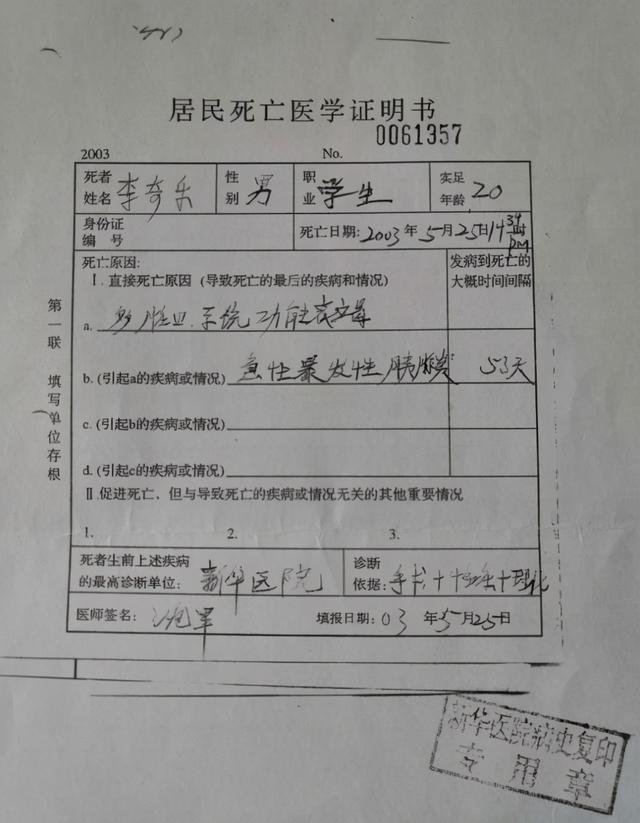 居民死亡医学证明书
0061357
2003 No.
死者姓名 李奇乐 性别 男 职业 学生 实足年龄 20
身份证编号 死亡日期：2003年5月25日14 39 pm
死亡原因： 发病到死亡的大概时间间隔
Ⅰ.直接死亡原因（导致死亡的最后的疾病和情况）
a. 多脏血.系统功能衰竭
b.(引起a的疾病或情况) 急性暴发性胰腺炎 53天
c.(引起b的疾病或情况)
d.(引起c的疾病或情况)
Ⅱ促进死亡，但与导致死亡的疾病或情况无关的其他重要情况
1. 2. 3.
死者生前上述疾病的最高诊断单位： 新华医院 诊断依据：手术+ +理化
医师签名： 填报日期：03年5月25日
第一联 填写单位存根
新华医院病史复印
专用章